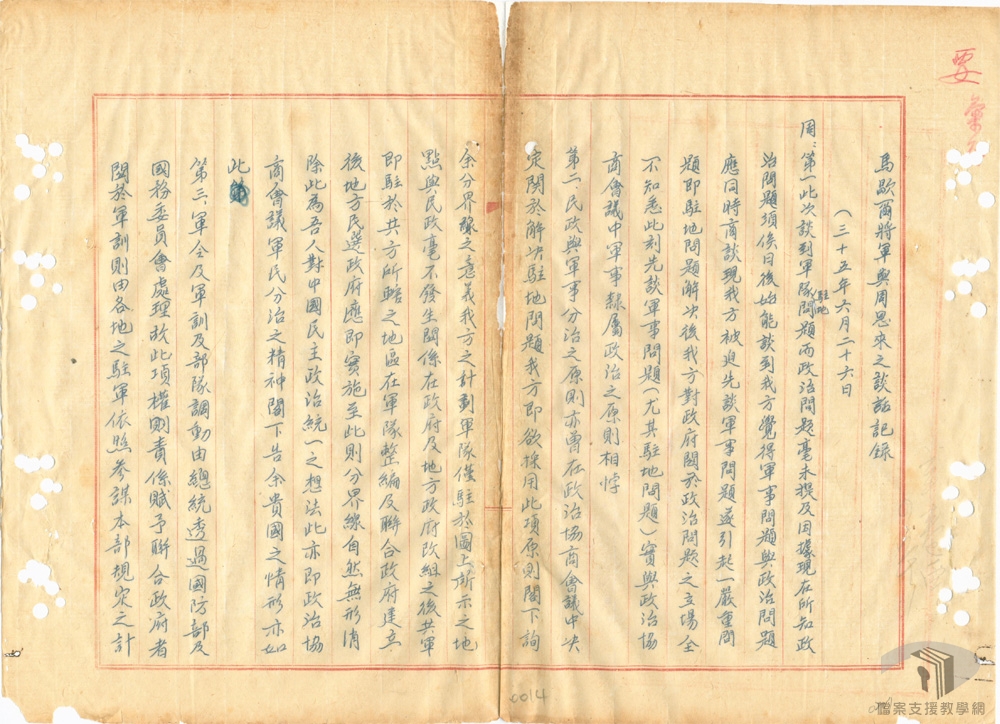 要
馬歇爾將軍與周恩來之談話記錄
(三十五年六月二十六日
周：第一此次談到軍隊駐地問題而政治問題毫未提及因據現在所知政
治問題須俟日後始能談到我方覺得軍事問題與政治問題
應同時商談現我方被迫先談軍事問題遂引起一嚴重問
題即駐地問題解決後我方對政府關於政治問題之立場全
不知悉此刻先談軍事問題(尤其駐地問題)實與政治協
商會議中軍事隸屬政治之原則相悖
第二、民政與軍事分治之原則亦曾在政治協商會議中決
定關於解決駐地問題我方即欲採用此項原則閣下詢
余分界線之意義我方之計劃軍隊僅駐於圖上所示之地
點與民政毫不發生關係在政府及地方政府改組之後共軍
即駐於共方所轄之地區在軍隊整編及聯合政府建立
後地方民選政府應即實施至此則分界線自然無形消
除此為吾人對中國民主政治統一之想法此亦即政治協
商會議軍民分治之精神閣下告余貴國之情形亦如
此
第三、軍令及軍訓及部隊調動由總統透過國防部及
國務委員會處理故此項權則責係賦予聯合政府者
關於軍訓則由各地之駐軍依照參謀本部規定之計
0014
檔案支援教學網